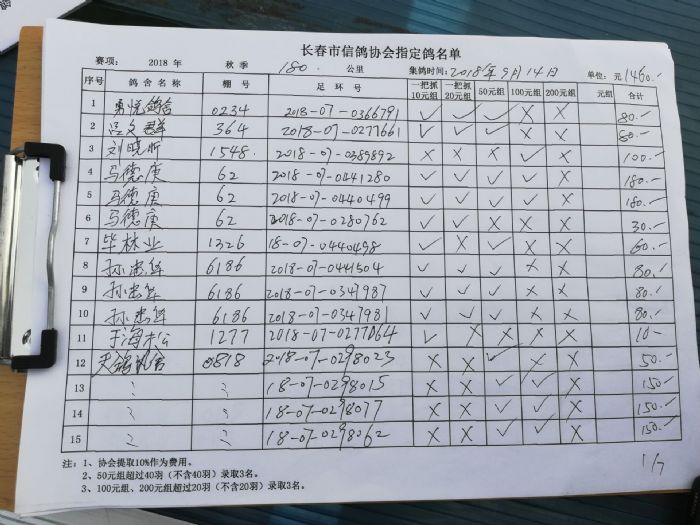 长春市信鸽协会指定鸽名单
赛项: 2018 年 秋季 180. 公里 集鸽时间: 2018年9月14日 单位: 元 1460.-
序号 鸽舍名称 棚号 足环号 一把抓10元组 一把抓20元组 50元组 100元组 200元组 元组 合计
1 勇悦鸽舍 0234 2018-07-0366791 ✓ ✓ ✓ X X 80.-
2 吕文群 364 2018-07-0277661 ✓ ✓ ✓ X X 80.-
3 刘晓昕 1548. 2018-07-0389892 X X X ✓ X 100.-
4 马德庚 62 2018-07-0441280 ✓ ✓ ✓ ✓ X 180.-
5 马德庚 62 2018-07-0440499 ✓ ✓ ✓ ✓ X 180.-
6 马德庚 62 2018-07-0280762 ✓ ✓ X X X 30.-
7 毕林业 1326 18-07-0440498 ✓ X ✓ X X 60.-
8 孙忠华 6186 2018-07-0441504 ✓ ✓ ✓ X X 80.-
9 孙忠华 6186 2018-07-0347987 ✓ ✓ ✓ X X 80.-
10 孙忠华 6186 2018-07-0347981 ✓ ✓ ✓ X X 80.-
11 于海 1277 2018-07-0277064 ✓ X X X X 10-
12 0818 2018-07-0298023 X X ✓ X X 50.-
13 〃 〃 18-07-0298015 X X ✓ ✓ X 150-
14 〃 〃 18-07-0298077 X X ✓ ✓ X 150.-
15 〃 〃 18-07-0298062 X X ✓ ✓ X 150.-
注: 1、协会提取10%作为费用。
2、50元组超过40羽(不含40羽)录取3名。
3、100元组、200元组超过20羽(不含20羽)录取3名。